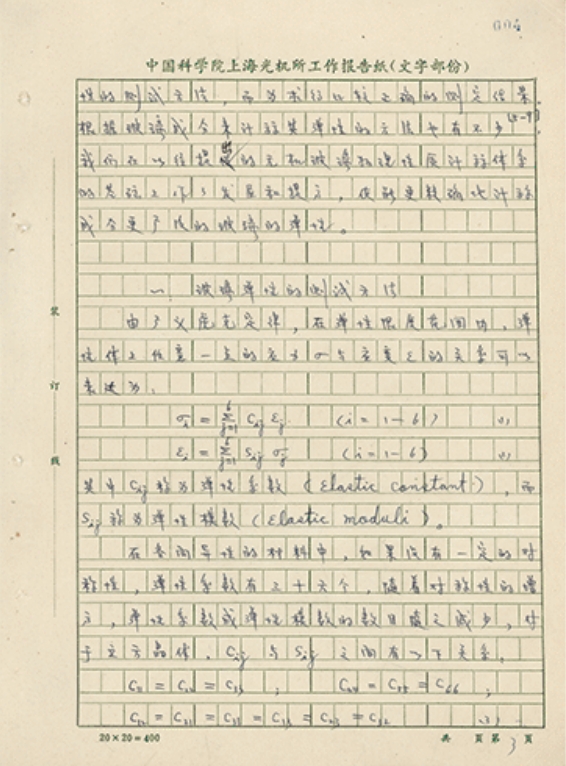 中国科学院上海光机所工作报告纸（文字部份）
性的测试方法，而为求得比较正确的测定结果，
根据玻璃成分来计算其弹性的方法也有不少[5-9]。
我们在以往提出的无机玻璃物理性质计算体系
的基础上作了发展和提高，使能更较确地计算
成分更广泛的玻璃的弹性。
一 玻璃弹性的测试方法
由广义虎克定律，在弹性限度范围内，弹
性体上任意一点的应力σ与应变ε的关系可以
表达为：
σi = Σ(j=1→6) Cij εj (i = 1-6) (1)
εi = Σ(j=1→6) Sij σj (i = 1-6)
其中Cij称为弹性系数（Elastic constant），而
Sij称为弹性模数（Elastic moduli）。
在各向异性的材料中，如果没有一定的对
称性，弹性系数有三十六个，随着对称性的增
高，弹性系数或弹性模数的数目随之减少，对
于立方晶体，Cij与Sij之间有以下关系，
C11 = C22 = C33 ； C44 = C55 = C66 ；
C12 = C21 = C13 = C31 = C23 = C32
20×20=400
共 页第3页
装
订
线